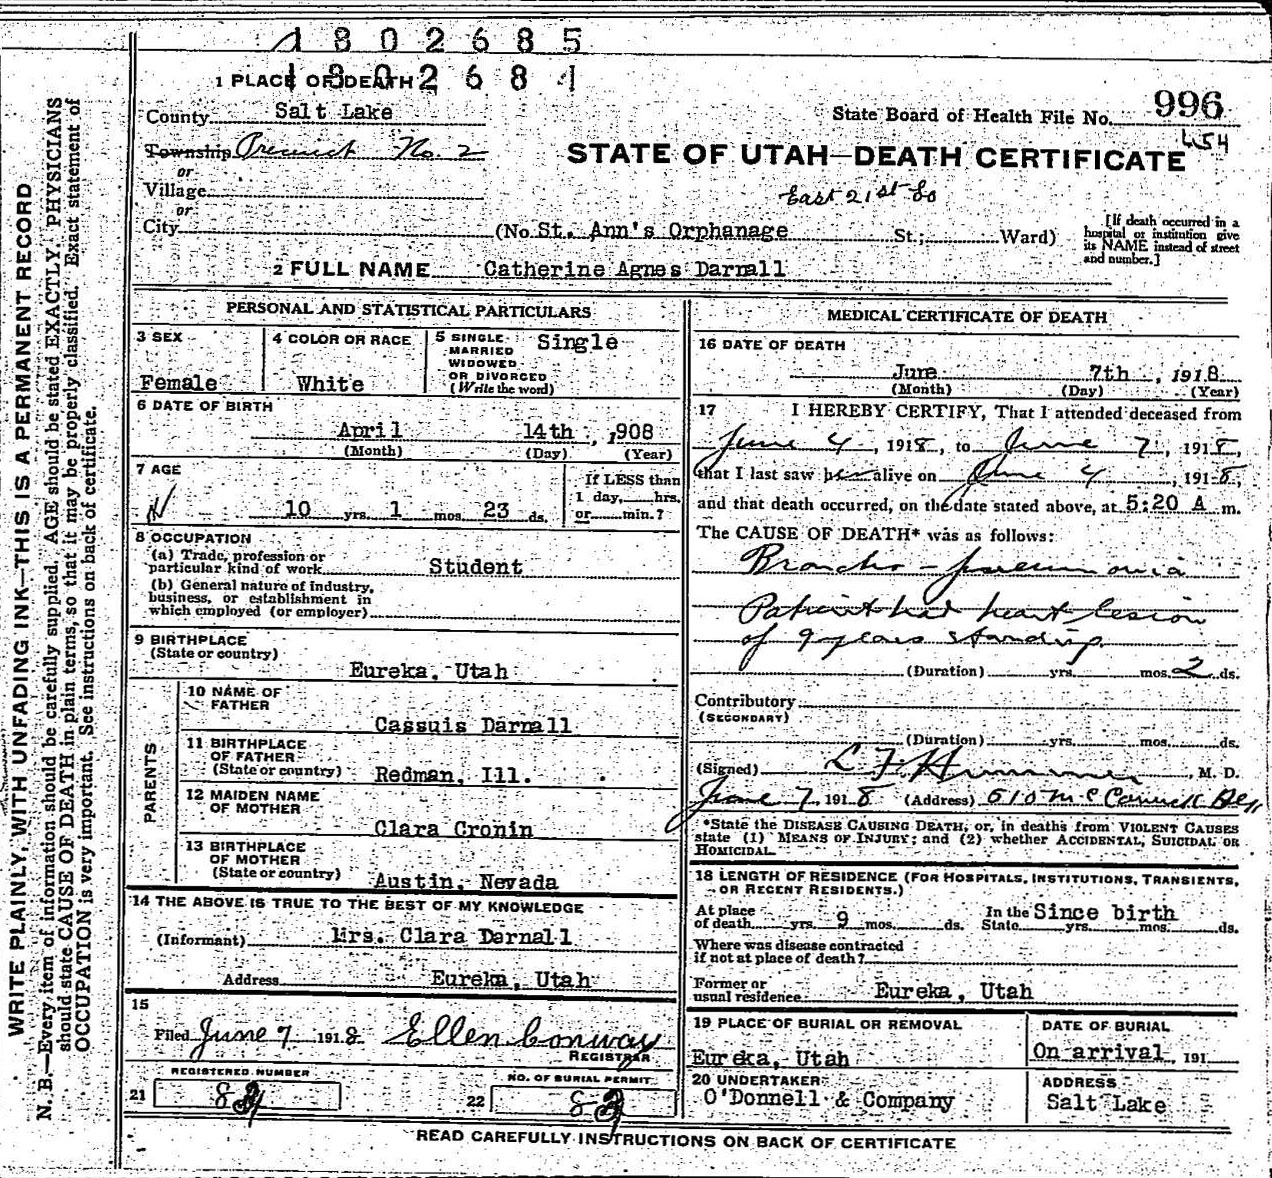 1802685
1802684
1 PLACE OF DEATH
County Salt Lake
State Board of Health File No. 996
654
Township Precinct No. 2
or
STATE OF UTAH—DEATH CERTIFICATE
Village
or
East 21st So
City (No. St. Ann's Orphanage St.; Ward)
[If death occurred in a hospital or institution give its NAME instead of street and number.]
2 FULL NAME Catherine Agnes Darnall
PERSONAL AND STATISTICAL PARTICULARS
3 SEX
Female
4 COLOR OR RACE
White
5 SINGLE
MARRIED
WIDOWED
OR DIVORCED
(Write the word)
Single
6 DATE OF BIRTH
April 14th, 1908
(Month) (Day) (Year)
7 AGE
10 yrs. 1 mos. 23 ds.
If LESS than
1 day, hrs.
or min.?
8 OCCUPATION
(a) Trade, profession or
particular kind of work Student
(b) General nature of industry,
business, or establishment in
which employed (or employer)
9 BIRTHPLACE
(State or country)
Eureka, Utah
PARENTS
10 NAME OF
FATHER
Cassuis Darnall
11 BIRTHPLACE
OF FATHER
(State or country) Redman, Ill.
12 MAIDEN NAME
OF MOTHER
Clara Cronin
13 BIRTHPLACE
OF MOTHER
(State or country)
Austin, Nevada
14 THE ABOVE IS TRUE TO THE BEST OF MY KNOWLEDGE
(Informant) Mrs. Clara Darnall
Address Eureka, Utah
15
Filed June 7 1918 Ellen Conway
REGISTRAR
REGISTERED NUMBER
21
NO. OF BURIAL PERMIT
22
MEDICAL CERTIFICATE OF DEATH
16 DATE OF DEATH
June 7th, 1918
(Month) (Day) (Year)
17 I HEREBY CERTIFY, That I attended deceased from
June 4, 1918, to June 7, 1918,
that I last saw her alive on June 4, 1918,
and that death occurred, on the date stated above, at 5:20 A m.
The CAUSE OF DEATH* was as follows:
Broncho-pneumonia
Patient had heart lesion
of 9 years standing.
(Duration) yrs. mos. 2 ds.
Contributory
(SECONDARY)
(Duration) yrs. mos. ds.
(Signed) , M. D.
June 7, 1918 (Address) 610 McCornick Bldg
*State the DISEASE CAUSING DEATH, or, in deaths from VIOLENT CAUSES
state (1) MEANS OF INJURY; and (2) whether ACCIDENTAL, SUICIDAL OR
HOMICIDAL.
18 LENGTH OF RESIDENCE (FOR HOSPITALS, INSTITUTIONS, TRANSIENTS,
OR RECENT RESIDENTS.)
At place
of death yrs. 9 mos. ds.
In the
State Since birth yrs. mos. ds.
Where was disease contracted
if not at place of death?
Former or
usual residence Eureka, Utah
19 PLACE OF BURIAL OR REMOVAL
Eureka, Utah
DATE OF BURIAL
On arrival, 191
20 UNDERTAKER
O'Donnell & Company
ADDRESS
Salt Lake
READ CAREFULLY INSTRUCTIONS ON BACK OF CERTIFICATE
WRITE PLAINLY, WITH UNFADING INK—THIS IS A PERMANENT RECORD
N. B.—Every item of information should be carefully supplied. AGE should be stated EXACTLY. PHYSICIANS
should state CAUSE OF DEATH in plain terms, so that it may be properly classified. Exact statement of
OCCUPATION is very important. See instructions on back of certificate.